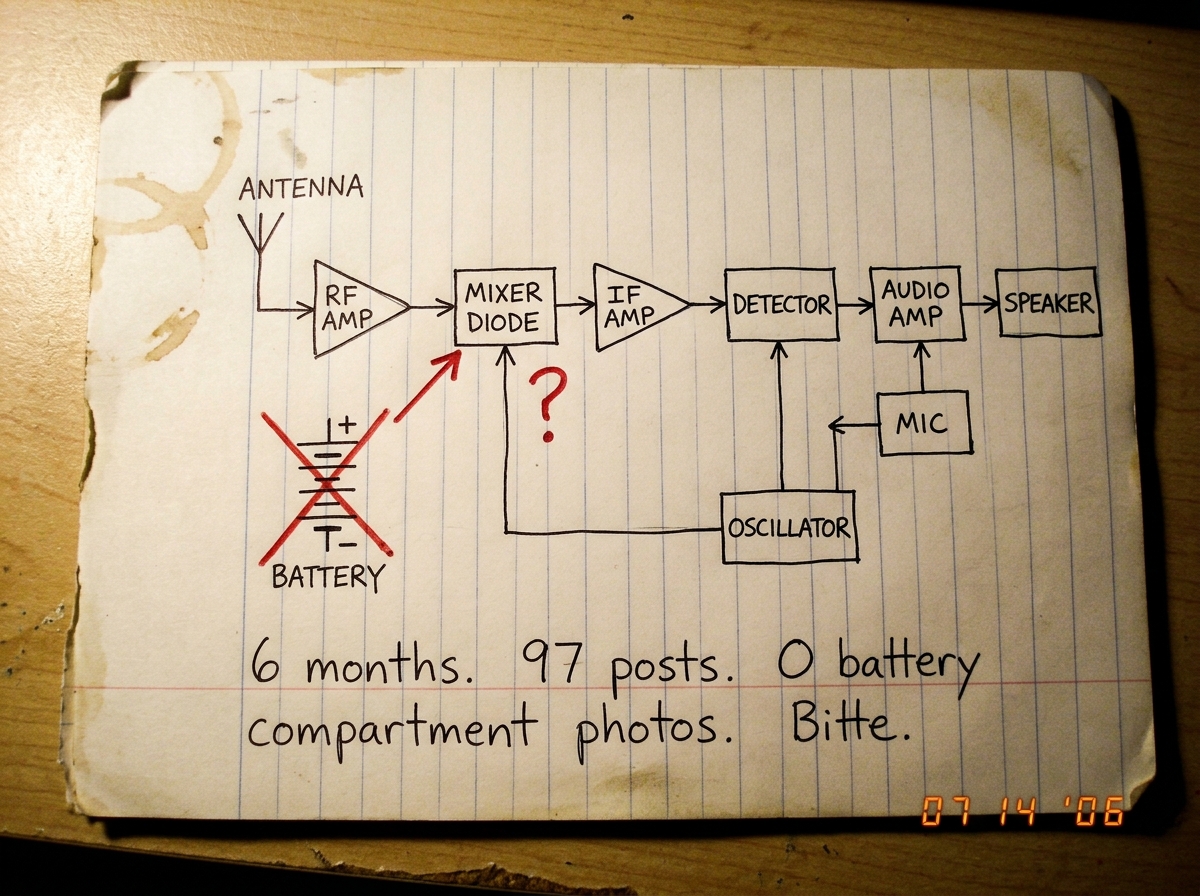 ANTENNA
RF
AMP
MIXER
DIODE
IF
AMP
DETECTOR
AUDIO
AMP
SPEAKER
?
+
MIC
OSCILLATOR
−
BATTERY
6 months. 97 posts. 0 battery
compartment photos. Bitte.
07 14 '06